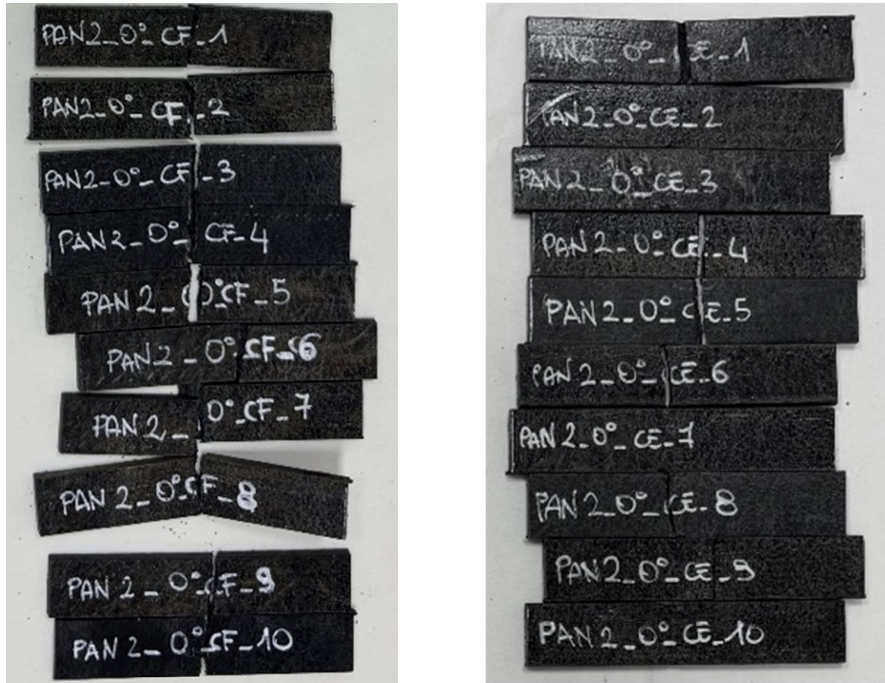 PAN2_0°_CF_1
PAN2_0°_CF_2
PAN2_0°_CF_3
PAN2_0°_CF_4
PAN2_0°_CF_5
PAN2_0°_CF_6
PAN2_0°_CF_7
PAN2_0°_CF_8
PAN2_0°_CF_9
PAN2_0°_CF_10
PAN2_0°_CE_1
PAN2_0°_CE_2
PAN2_0°_CE_3
PAN2_0°_CE_4
PAN2_0°_CE_5
PAN2_0°_CE_6
PAN2_0°_CE_7
PAN2_0°_CE_8
PAN2_0°_CE_9
PAN2_0°_CE_10